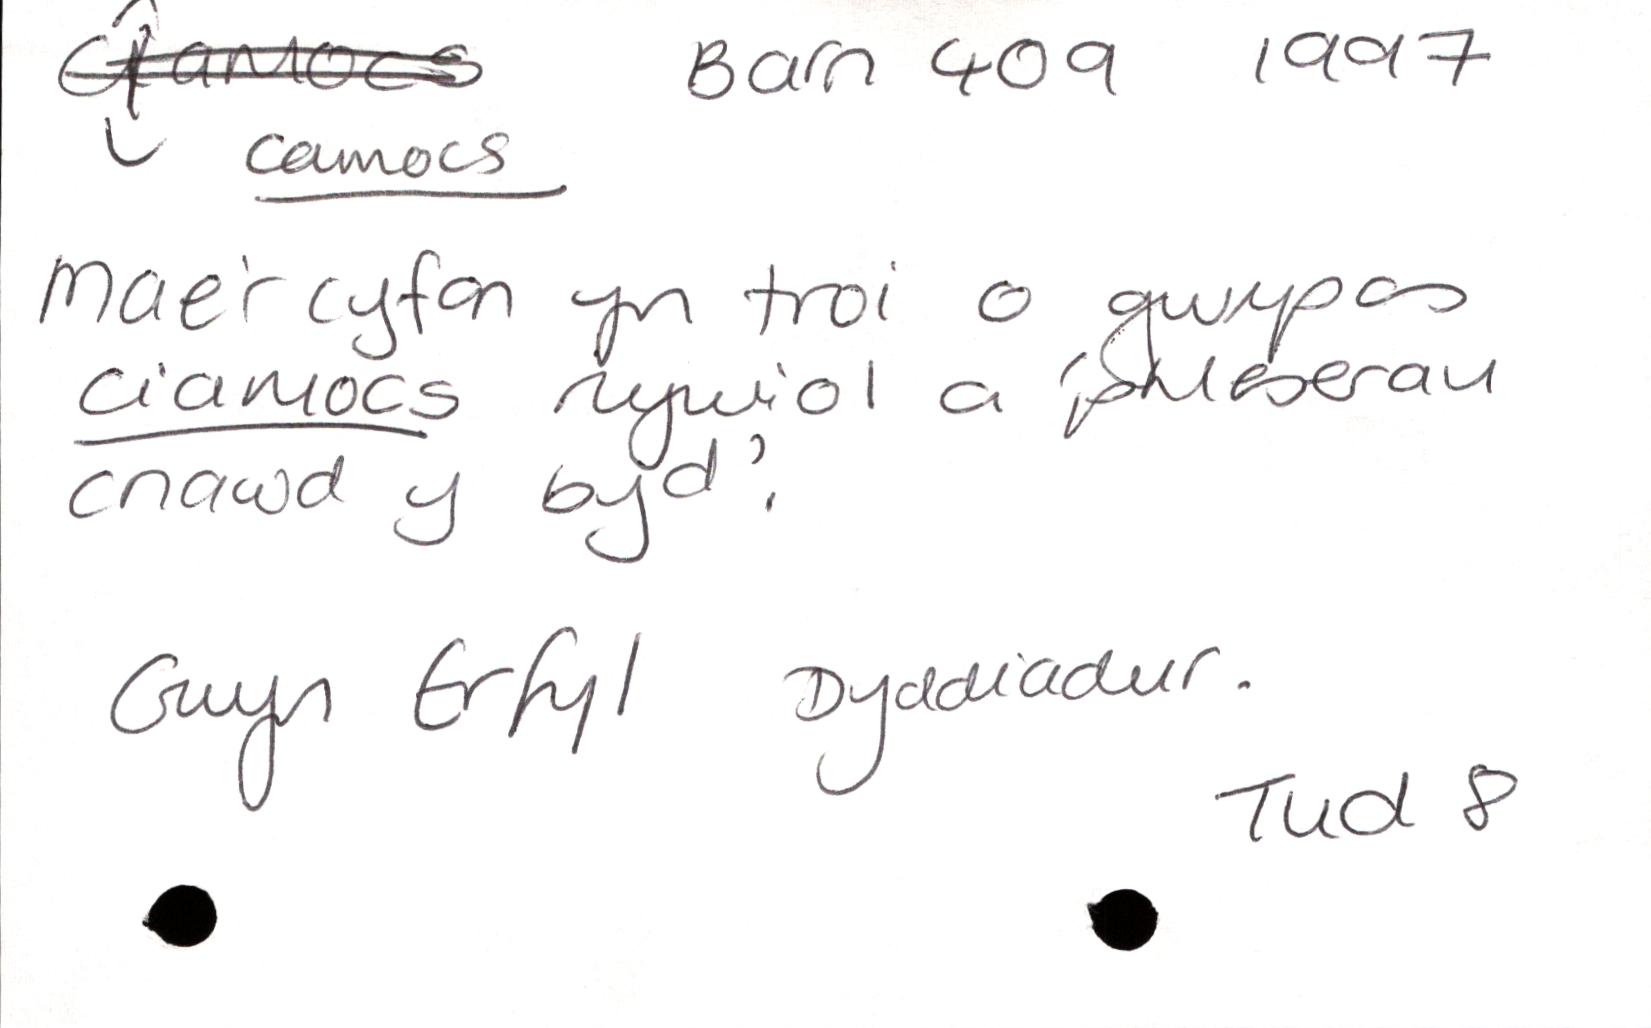 ciamocs Barn 409 1997
camocs
Mae'r cyfan yn troi o gwmpas
ciamocs rywiol a 'phleserau
cnawd y byd',
Gwyn Erfyl Dyddiadur.
Tud 8